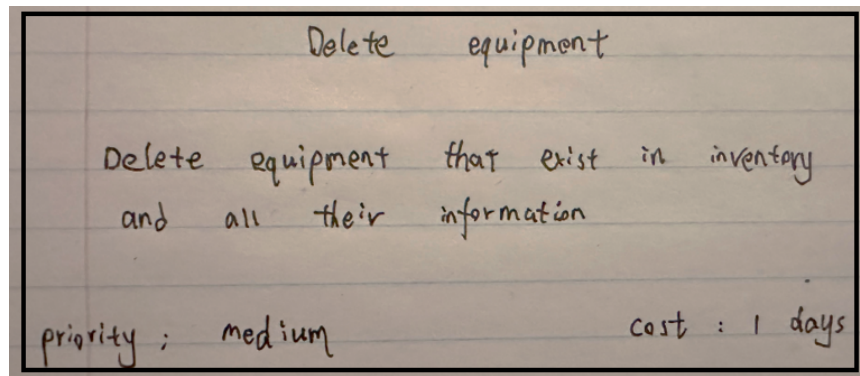 Delete equipment
Delete equipment that exist in inventory
and all their information
priority : medium cost : 1 days